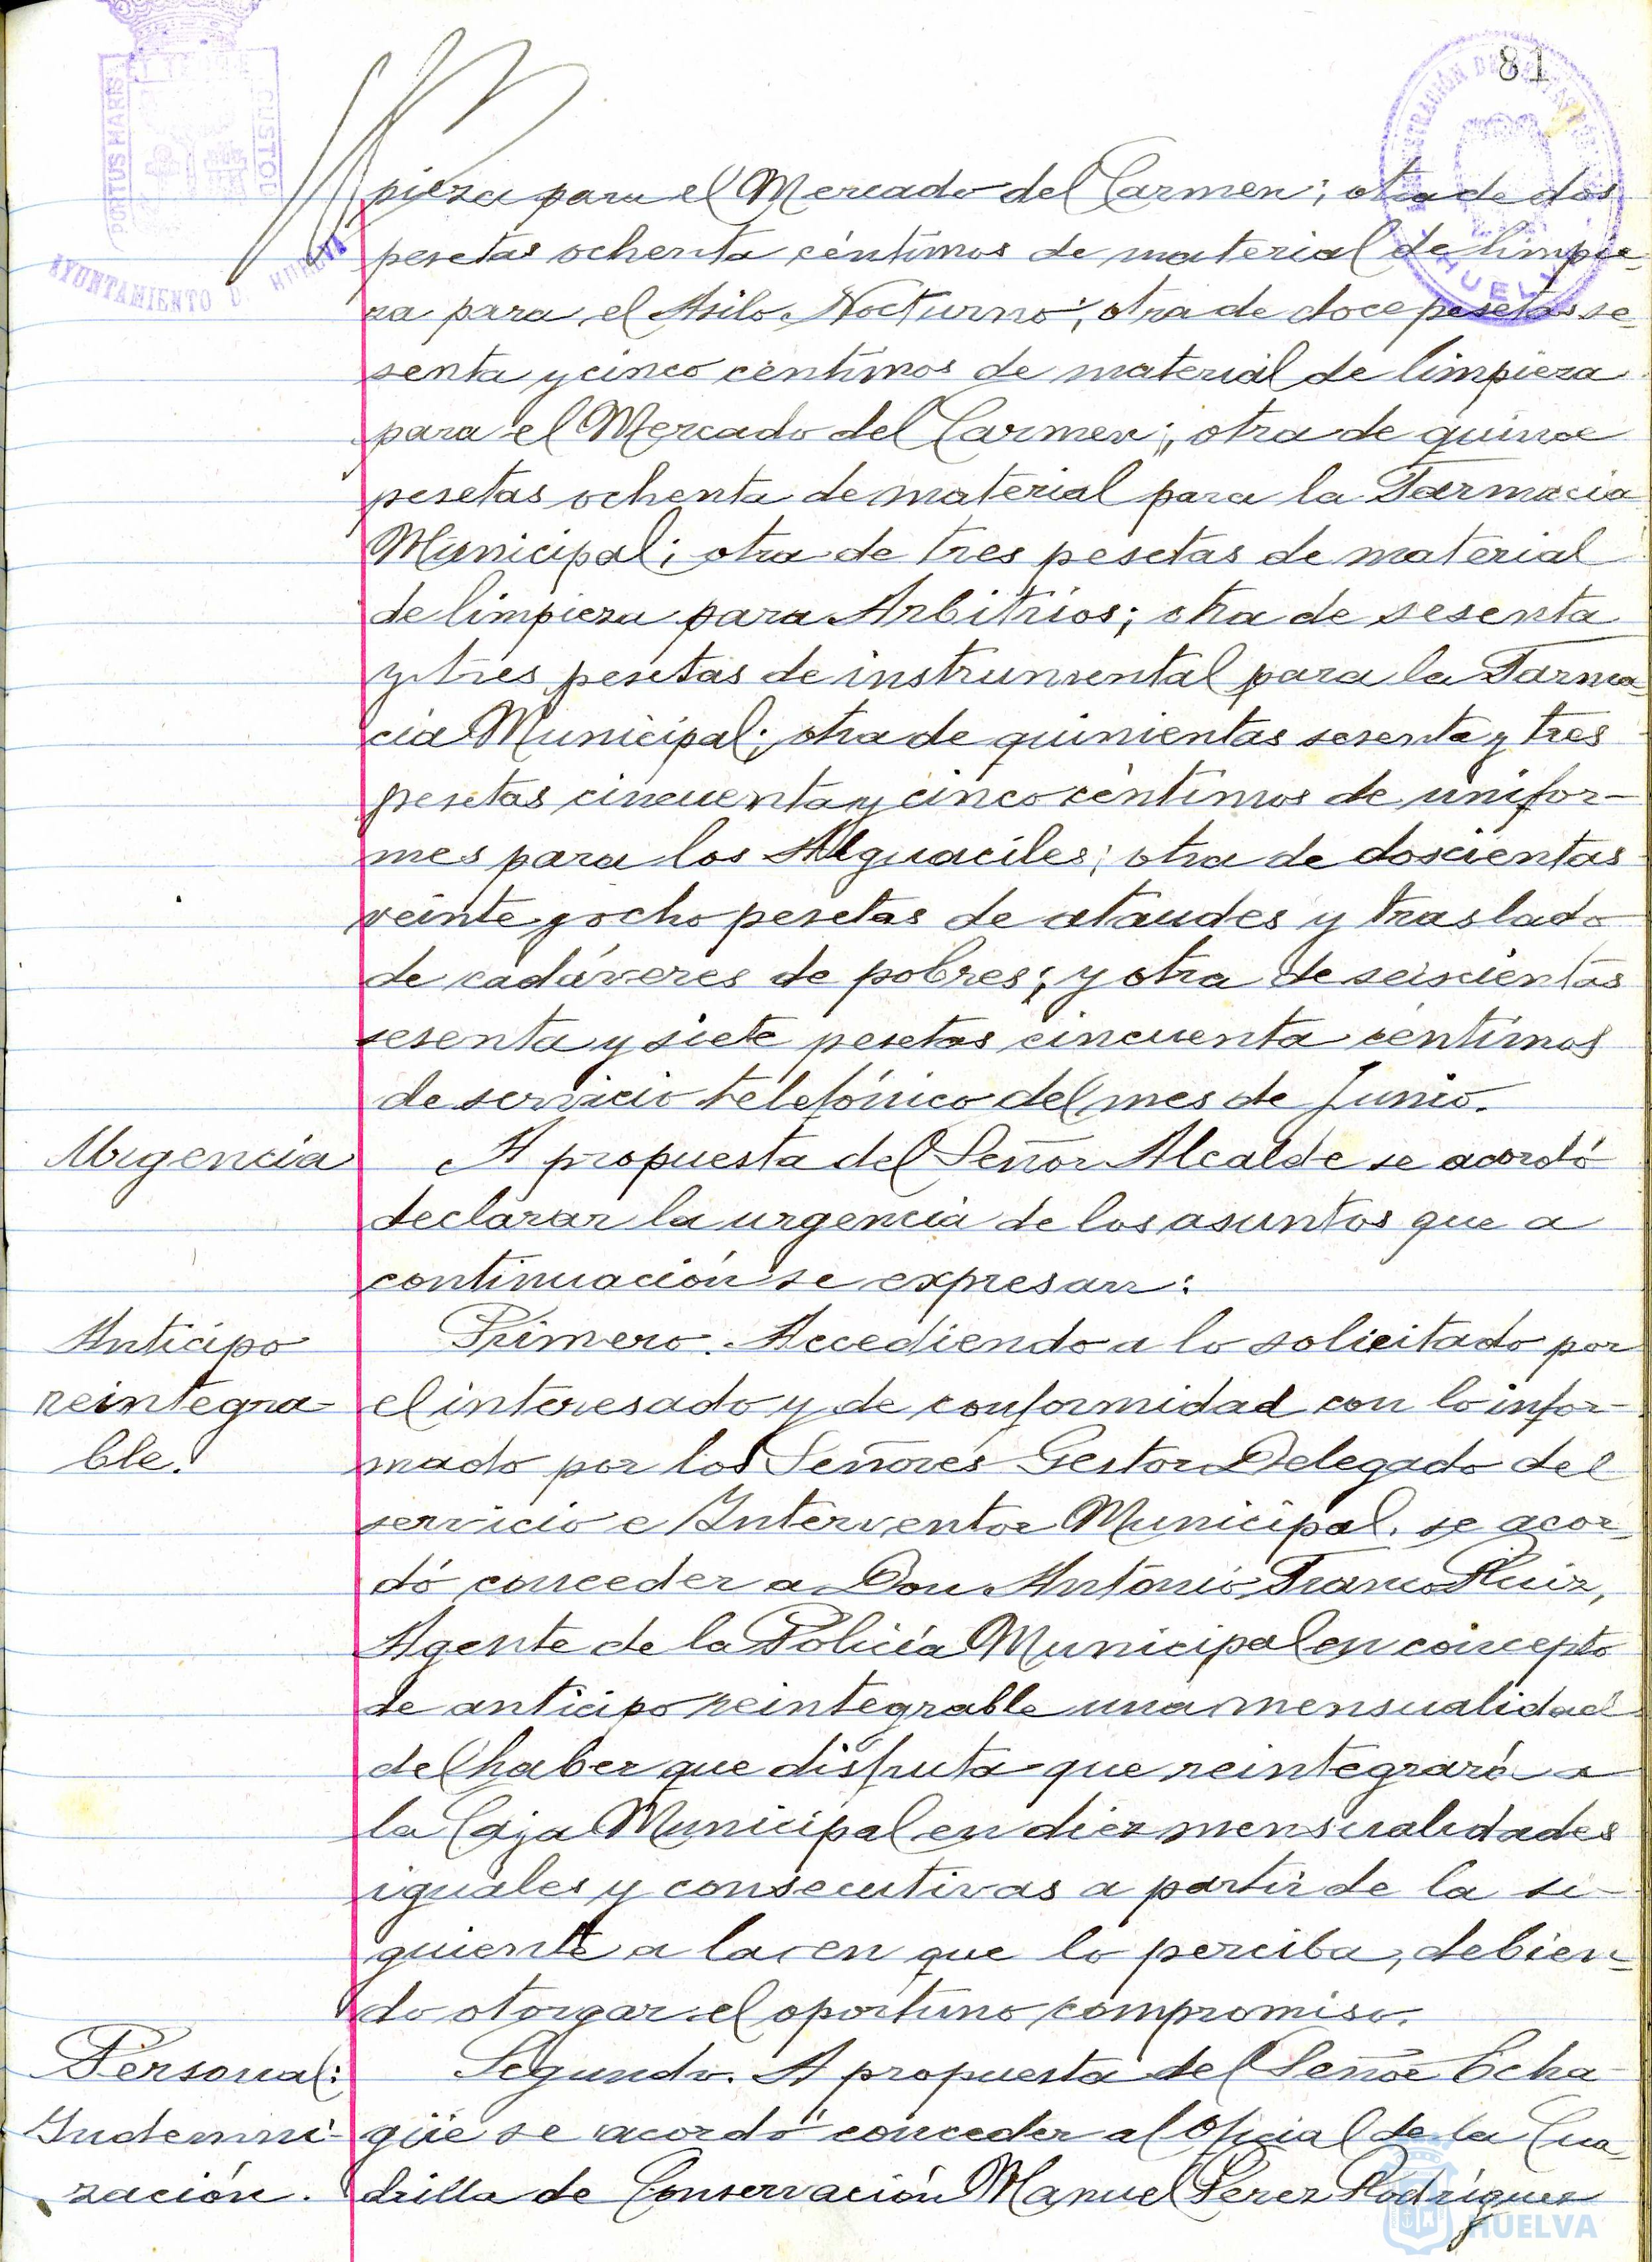 81
PORTUS MARIS
CUSTODIA
AYUNTAMIENTO DE HUELVA
HUELVA
pieza para el Mercado del Carmen; otra de dos
pesetas ochenta céntimos de material de limpie-
za para el Asilo Nocturno; otra de doce pesetas se-
senta y cinco céntimos de material de limpieza
para el Mercado del Carmen; otra de quince
pesetas ochenta de material para la Farmacia
Municipal; otra de tres pesetas de material
de limpieza para Arbitrios; otra de sesenta
y tres pesetas de instrumental para la Farma-
cia Municipal; otra de quinientas sesenta y tres
pesetas cincuenta y cinco céntimos de unifor-
mes para los Alguaciles; otra de doscientas
veinte y ocho pesetas de ataudes y traslado
de cadáveres de pobres; y otra de seiscientas
sesenta y siete pesetas cincuenta céntimos
de servicio telefónico del mes de Junio.
Urgencia
A propuesta del Señor Alcalde se acordó
declarar la urgencia de los asuntos que a
continuación se expresan:
Anticipo
reintegra-
ble.
Primero. Accediendo a lo solicitado por
el interesado y de conformidad con lo infor-
mado por los Señores Gestor Delegado del
servicio e Interventor Municipal, se acor-
dó conceder a Don Antonio Franco Ruiz,
Agente de la Policía Municipal en concepto
de anticipo reintegrable una mensualidad
del haber que disfruta que reintegrará a
la Caja Municipal en diez mensualidades
iguales y consecutivas a partir de la si-
guiente a la en que lo perciba, debien-
do otorgar el oportuno compromiso.
Personal:
Indemni-
zación.
Segundo. A propuesta del Señor Echa-
güe se acordó conceder al Oficial de la Cua-
drilla de Conservación Manuel Perez Rodríguez
HUELVA